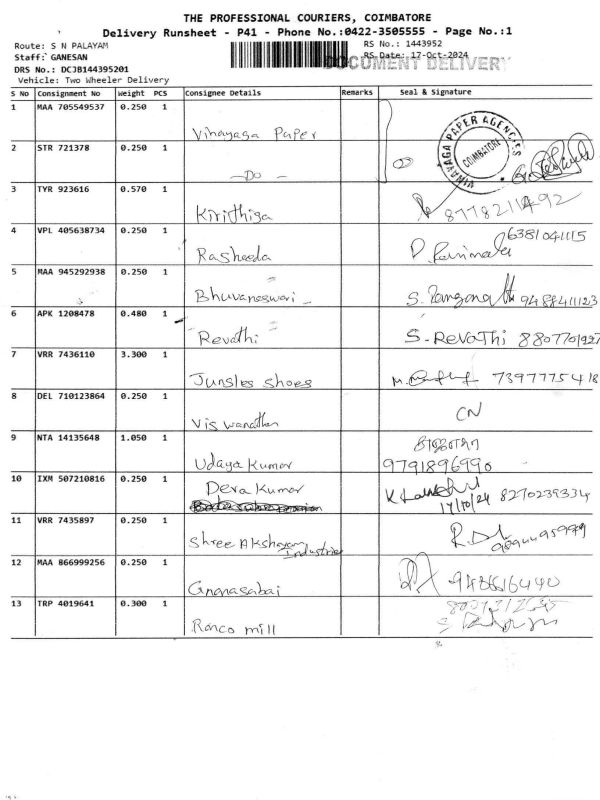 THE PROFESSIONAL COURIERS, COIMBATORE
Delivery Runsheet - P41 - Phone No.:0422-3505555 - Page No.:1
Route: S N PALAYAM
RS No.: 1443952
Staff: GANESAN
RS Date: 17-Oct-2024
DOCUMENT DELIVERY
DRS No.: DCJB144395201
Vehicle: Two Wheeler Delivery
S No Consignment No Weight PCS Consignee Details Remarks Seal & Signature
1 MAA 705549537 0.250 1
Vinayaga Paper
VINAYAGA PAPER AGENCIES
COIMBATORE
2 STR 721378 0.250 1
-Do-
3 TYR 923616 0.570 1
Kirithiga 8778211492
4 VPL 405638734 0.250 1
6381041115
Rasheeda
5 MAA 945292938 0.250 1
Bhuvaneswari 9488411123
6 APK 1208478 0.480 1
Revathi S-Revathi 8807701927
7 VRR 7436110 3.300 1
Junsles shoes 7397775418
8 DEL 710123864 0.250 1
CN
Viswanathan
9 NTA 14135648 1.050 1
Udaya Kumar 9791896990
10 IXM 507210816 0.250 1
Deva Kumar
17/10/24 8270239334
11 VRR 7435897 0.250 1
Shree Akshayam
Industries
12 MAA 866999256 0.250 1
Gnanasabai 948616440
13 TRP 4019641 0.300 1
Ranco mill